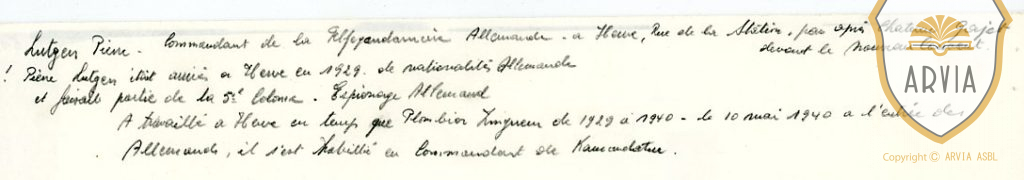 Lutgen Pierre - Commandant de la Allemande - a Herve, Rue de la Station, par après Chateau
devant le nouveau
! Pierre Lutgen était arrivés a Herve en 1929. de nationalités Allemande
et faisait partie de la 5e Colonne. Espionage Allemand
A travaillé a Herve en temp que Plombier Zingueur de 1929 a 1940 - le 10 mai 1940 a l'entrée des
Allemands, il s'est habillé en Commandant de Kommandatur.
ARVIA
Copyright © ARVIA ASBL